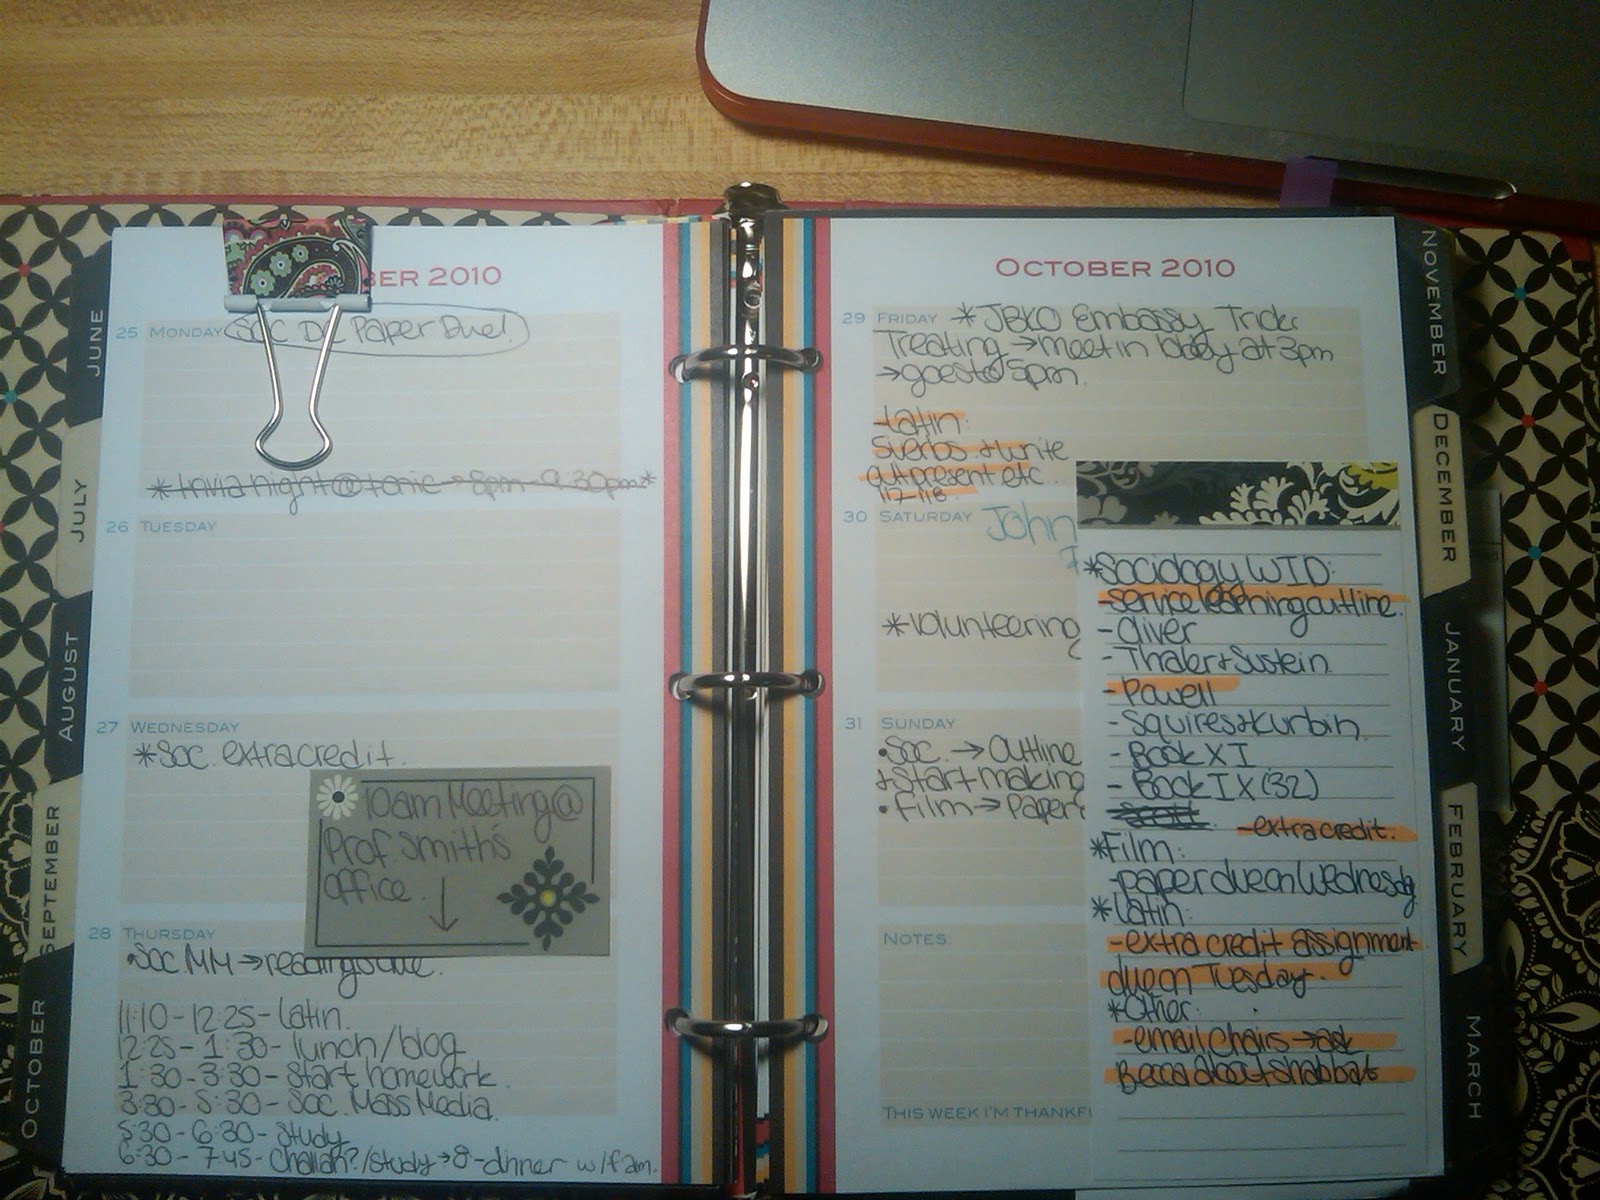 JUNE
JULY
AUGUST
SEPTEMBER
OCTOBER
BER 2010
25 MONDAY Soc DC Paper Due!
*trivia night @ tonic → 8pm - 9:30pm*
26 TUESDAY
27 WEDNESDAY
*Soc. extra credit.
10am Meeting @
Prof Smith's
office. ↓
28 THURSDAY
•Soc MM → readings due.
11:10-12:25- Latin.
12:25-1:30- lunch/blog
1:30-3:30- Start homework.
3:30-5:30- Soc. Mass Media.
5:30-6:30- Study
6:30-7:45- Challah?/study → 8-dinner w/fam.
OCTOBER 2010
29 FRIDAY *JBKO Embassy Trick
Treating → meet in lobby at 3pm
→ goes to 5pm.
-Latin:
5 verbs + write
out present etc...
112-118
30 SATURDAY John
*Volunteering
31 SUNDAY
•Soc. → Outline
+ start making
•Film → Paper
NOTES:
THIS WEEK I'M THANKF
*Sociology WID:
-service learning outline.
-Oliver
-Thaler + Sustein.
-Powell
-Squires + Kurbin.
-Book XI
-Book IX (32)
-extra credit.
*Film:
-paper due on Wednesday
*Latin:
-extra credit assignment
due on Tuesday.
*Other:
-email chairs → ask
Becca about Shabbat
NOVEMBER
DECEMBER
JANUARY
FEBRUARY
MARCH